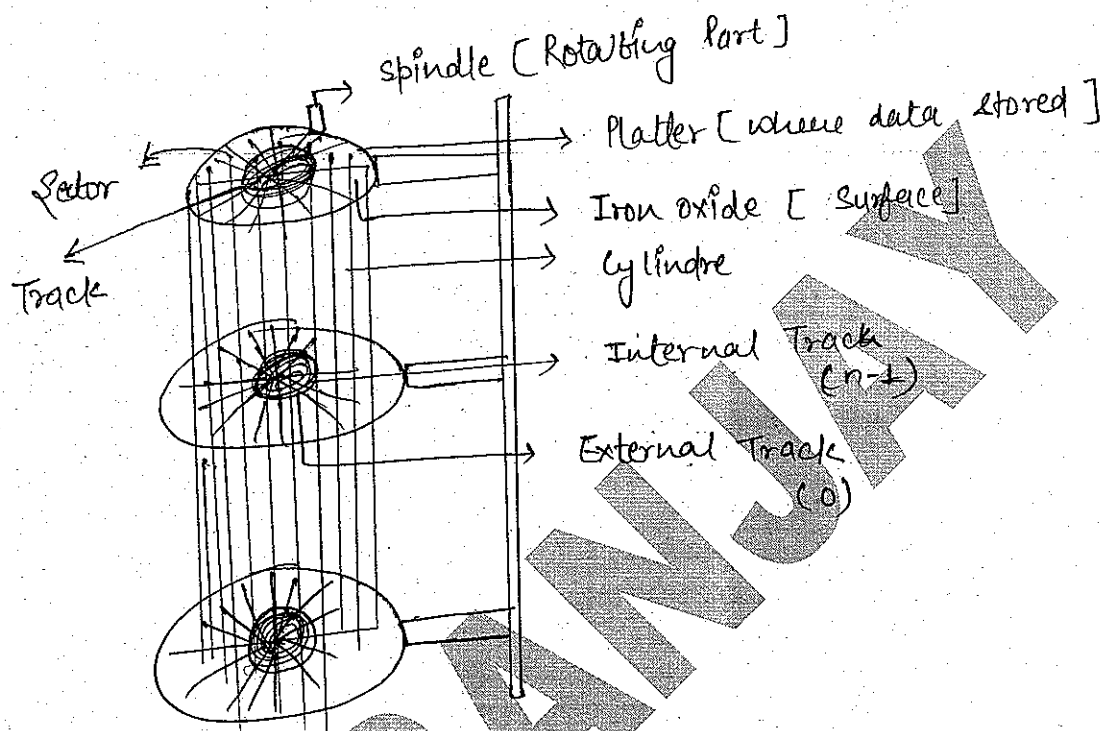 spindle [Rotating Part]
Platter [where data stored]
Sector
Iron oxide [Surface]
Cylindre
Track
Internal Track
(n-1)
External Track
(0)
ANJAY